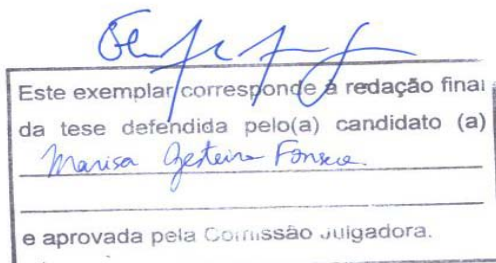 Este exemplar corresponde à redação final
da tese defendida pelo(a) candidato (a)
Marisa Gesteira Fonseca
e aprovada pela Comissão Julgadora.